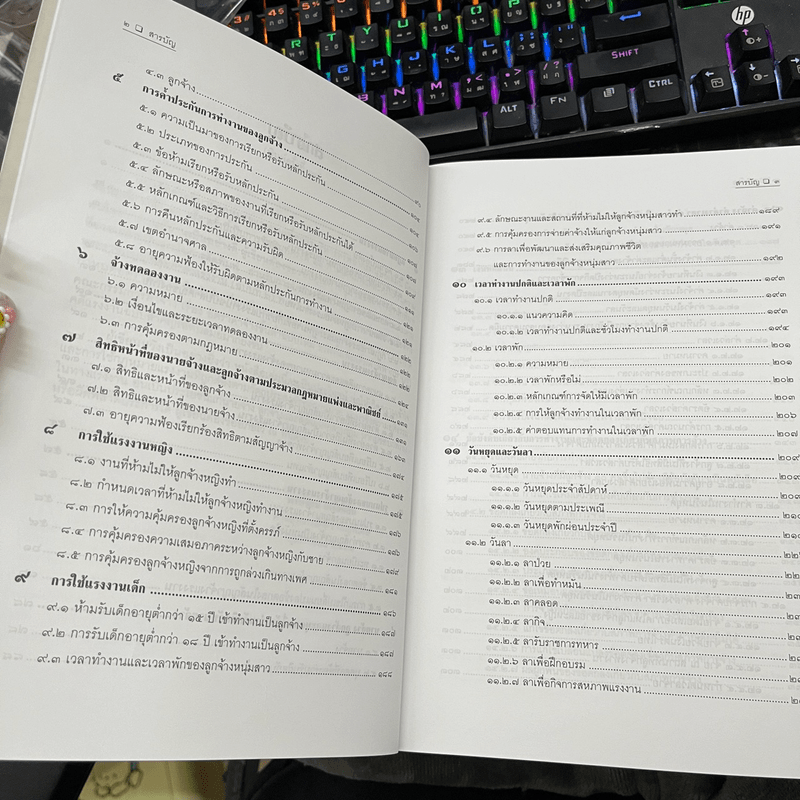 ๒ ❑ สารบัญ
๔.๓ ลูกจ้าง
๕ การค้ำประกันการทำงานของลูกจ้าง
๕.๑ ความเป็นมาของการเรียกหรือรับหลักประกัน
๕.๒ ประเภทของการประกัน
๕.๓ ข้อห้ามเรียกหรือรับหลักประกัน
๕.๔ ลักษณะหรือสภาพของงานที่เรียกหรือรับหลักประกันได้
๕.๕ หลักเกณฑ์และวิธีการเรียกหรือรับหลักประกัน
๕.๖ การคืนหลักประกันและความรับผิด
๕.๗ เขตอำนาจศาล
๕.๘ อายุความฟ้องให้รับผิดตามหลักประกันการทำงาน
๖ จ้างทดลองงาน
๖.๑ ความหมาย
๖.๒ เงื่อนไขและระยะเวลาทดลองงาน
๖.๓ การคุ้มครองตามกฎหมาย
๗ สิทธิหน้าที่ของนายจ้างและลูกจ้างตามประมวลกฎหมายแพ่งและพาณิชย์
๗.๑ สิทธิและหน้าที่ของลูกจ้าง
๗.๒ สิทธิและหน้าที่ของนายจ้าง
๗.๓ อายุความฟ้องเรียกร้องสิทธิตามสัญญาจ้าง
๘ การใช้แรงงานหญิง
๘.๑ งานที่ห้ามไม่ให้ลูกจ้างหญิงทำ
๘.๒ กำหนดเวลาที่ห้ามไม่ให้ลูกจ้างหญิงทำงาน
๘.๓ การให้ความคุ้มครองลูกจ้างหญิงที่ตั้งครรภ์
๘.๔ การคุ้มครองความเสมอภาคระหว่างลูกจ้างหญิงกับชาย
๘.๕ การคุ้มครองลูกจ้างหญิงจากการถูกล่วงเกินทางเพศ
๙ การใช้แรงงานเด็ก ๑๘๖
๙.๑ ห้ามรับเด็กอายุต่ำกว่า ๑๕ ปี เข้าทำงานเป็นลูกจ้าง ๑๘๗
๙.๒ การรับเด็กอายุต่ำกว่า ๑๘ ปี เข้าทำงานเป็นลูกจ้าง ๑๘๗
๙.๓ เวลาทำงานและเวลาพักของลูกจ้างหนุ่มสาว ๑๘๘
สารบัญ ❑ ๓
๙.๔ ลักษณะงานและสถานที่ที่ห้ามไม่ให้ลูกจ้างหนุ่มสาวทำ ๑๘๙
๙.๕ การคุ้มครองการจ่ายค่าจ้างให้แก่ลูกจ้างหนุ่มสาว ๑๙๑
๙.๖ การลาเพื่อพัฒนาและส่งเสริมคุณภาพชีวิต
และการทำงานของลูกจ้างหนุ่มสาว ๑๙๒
๑๐ เวลาทำงานปกติและเวลาพัก ๑๙๓
๑๐.๑ เวลาทำงานปกติ ๑๙๓
๑๐.๑.๑ แนวความคิด ๑๙๓
๑๐.๑.๒ เวลาทำงานปกติและชั่วโมงทำงานปกติ ๑๙๔
๑๐.๒ เวลาพัก ๒๐๑
๑๐.๒.๑ ความหมาย ๒๐๑
๑๐.๒.๒ เวลาพักหรือไม่ ๒๐๒
๑๐.๒.๓ หลักเกณฑ์การจัดให้มีเวลาพัก ๒๐๓
๑๐.๒.๔ การให้ลูกจ้างทำงานในเวลาพัก ๒๐๖
๑๐.๒.๕ ค่าตอบแทนการทำงานในเวลาพัก ๒๐๗
๑๑ วันหยุดและวันลา ๒๐๙
๑๑.๑ วันหยุด ๒๐๙
๑๑.๑.๑ วันหยุดประจำสัปดาห์
๑๑.๑.๒ วันหยุดตามประเพณี
๑๑.๑.๓ วันหยุดพักผ่อนประจำปี
๑๑.๒ วันลา
๑๑.๒.๑ ลาป่วย
๑๑.๒.๒ ลาเพื่อทำหมัน
๑๑.๒.๓ ลาคลอด
๑๑.๒.๔ ลากิจ
๑๑.๒.๕ ลารับราชการทหาร
๑๑.๒.๖ ลาเพื่อฝึกอบรม
๑๑.๒.๗ ลาเพื่อกิจการสหภาพแรงงาน
hp
SHIFT
ALT
FN
CTRL